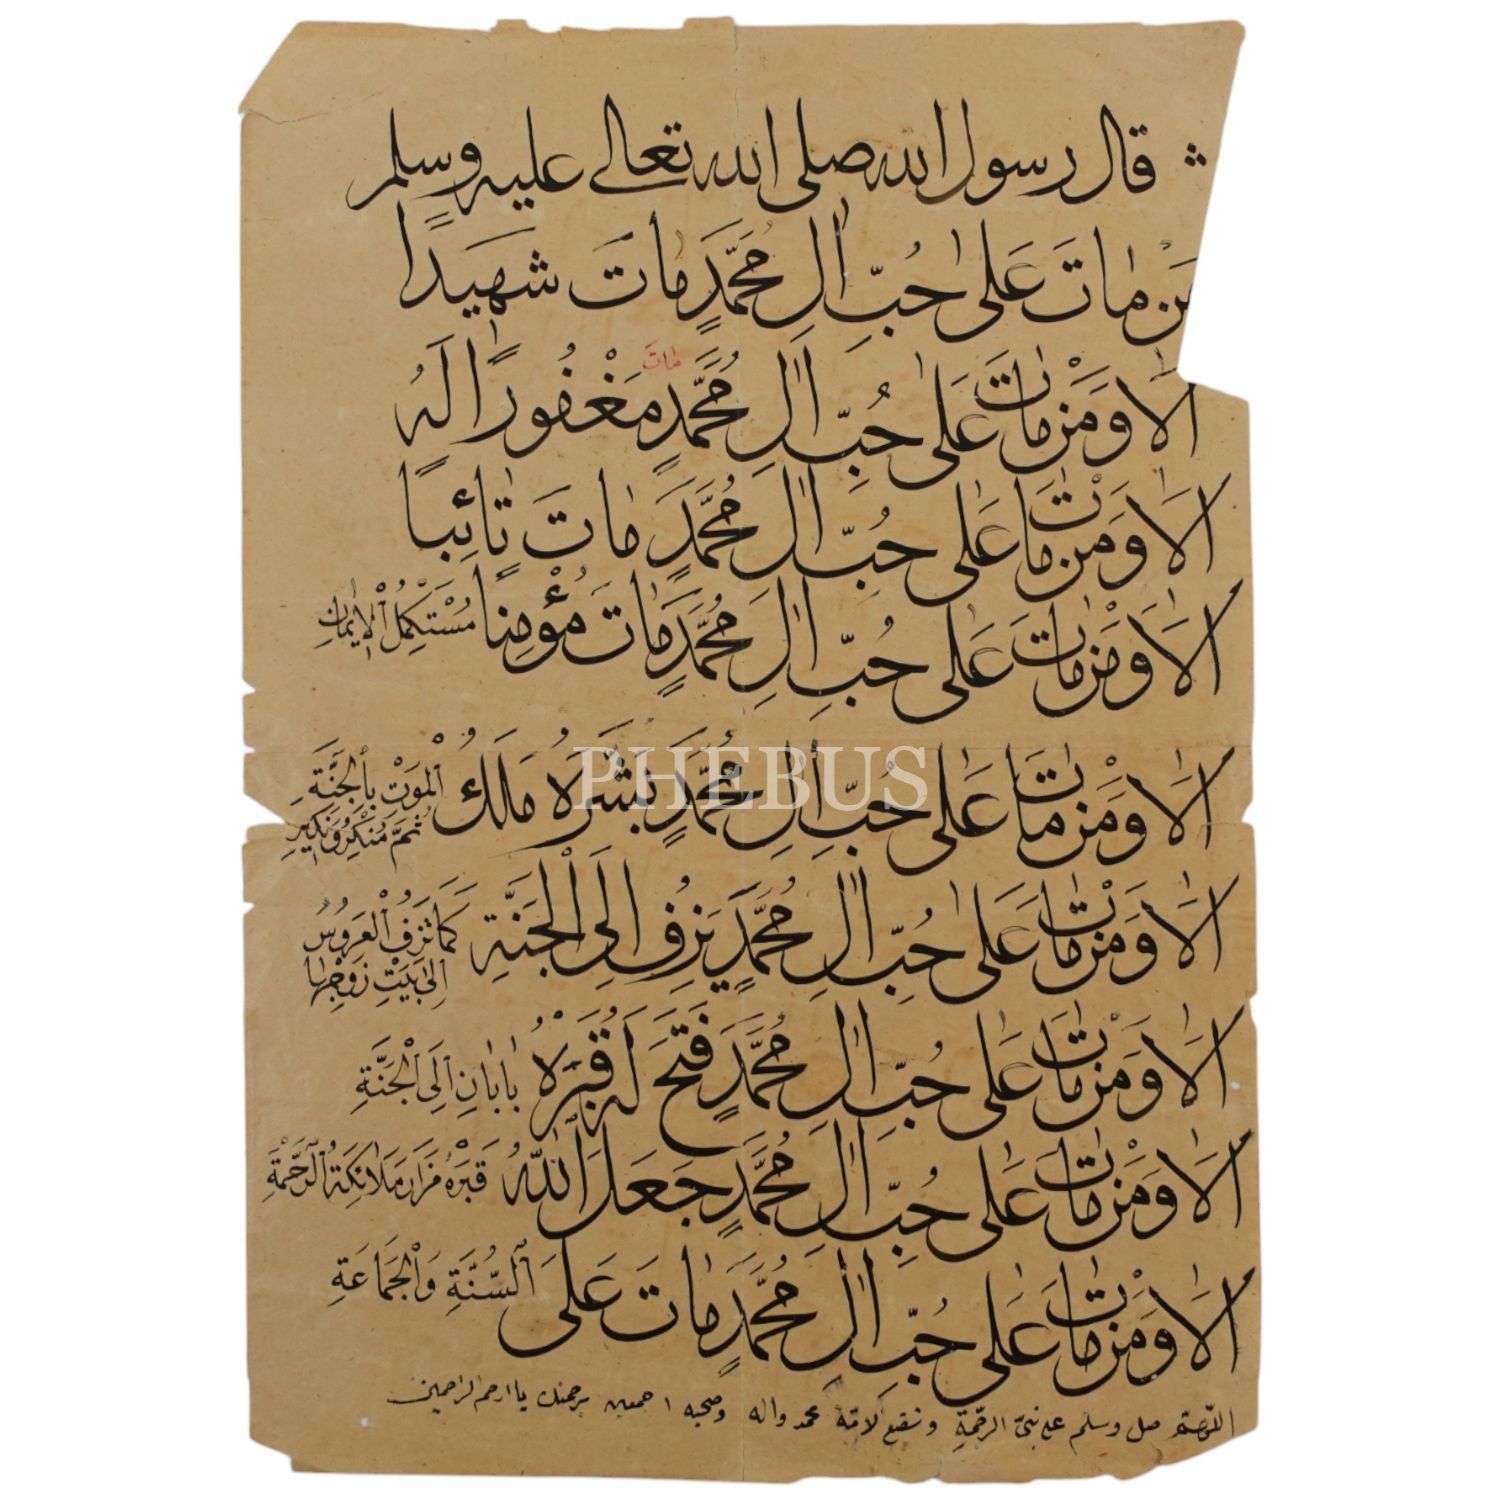 قال رسول الله صلى الله تعالى عليه وسلم
من مات عَلى حُبِّ اٰلِ مُحَمَّدٍ مٰاتَ شَهٖيدًا
اَلاٰ وَمَنْ مٰاتَ عَلٰى حُبِّ اٰلِ مُحَمَّدٍ مٰاتَ مَغْفُورًا لَهُ
اَلاٰ وَمَنْ مٰاتَ عَلٰى حُبِّ اٰلِ مُحَمَّدٍ مٰاتَ تٰائِبًا
اَلاٰ وَمَنْ مٰاتَ عَلٰى حُبِّ اٰلِ مُحَمَّدٍ مٰاتَ مُؤْمِنًا مُسْتَكْمِلُ الْاٖيمٰانِ
اَلاٰ وَمَنْ مٰاتَ عَلٰى حُبِّ اٰلِ مُحَمَّدٍ بَشَّرَهُ مَلَكُ الْمَوْتِ بِالْجَنَّةِ ثُمَّ مُنْكَرٌ وَنَكٖيرٌ
PHEBUS
اَلاٰ وَمَنْ مٰاتَ عَلٰى حُبِّ اٰلِ مُحَمَّدٍ يُزَفُّ اِلَى الْجَنَّةِ كَمَا تُزَفُّ الْعَرُوسُ اِلٰى بَيْتِ زَوْجِهٰا
اَلاٰ وَمَنْ مٰاتَ عَلٰى حُبِّ اٰلِ مُحَمَّدٍ فَتَحَ لَهُ قَبْرُهُ بٰابٰانِ اِلَى الْجَنَّةِ
اَلاٰ وَمَنْ مٰاتَ عَلٰى حُبِّ اٰلِ مُحَمَّدٍ جَعَلَ اللّٰهُ قَبْرَهُ مَزَارَ مَلٰائِكَةُ الرَّحْمَةِ
اَلاٰ وَمَنْ مٰاتَ عَلٰى حُبِّ اٰلِ مُحَمَّدٍ مٰاتَ عَلَى السُّنَّةِ وَالْجَمَاعَةِ
اللّهمّ صل وسلم على نبىّ الرحمةِ وشفيع الامّة محمد واله وصحبه اجمعين برحمتك يا ارحم الراحمين